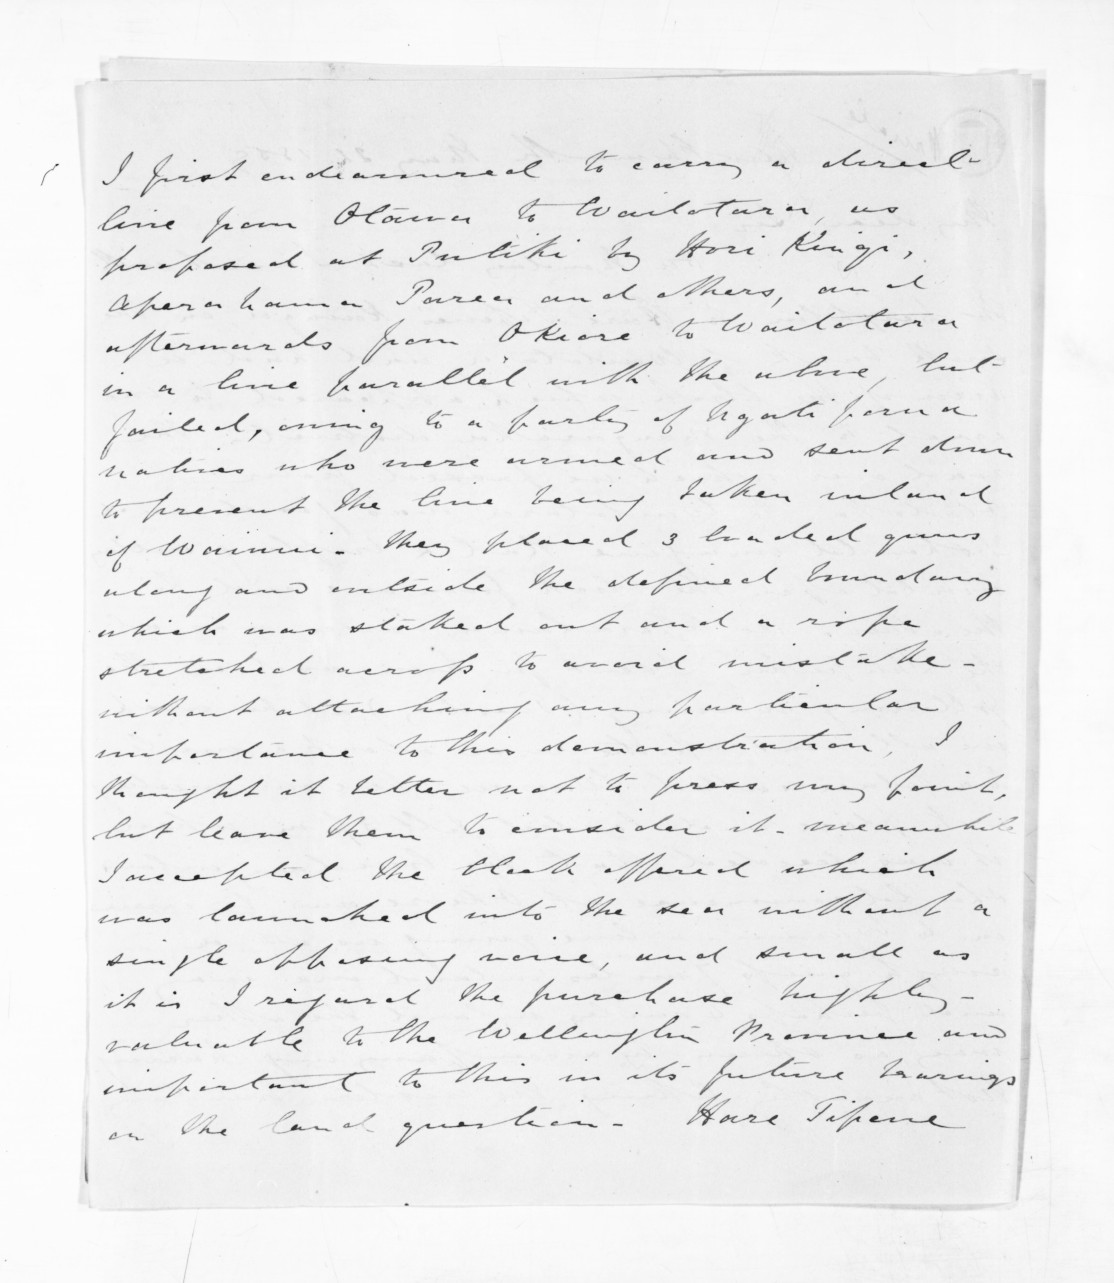 I first endeavoured to carry a direct
line from Otauia to Waitotara, as
proposed at Putiki by Hori Kingi,
Aperahama Parea and others, and
afterwards from Okiore to Waitotara
in a line parallel with the above, but
failed, owing to a party of Ngati porua
natives who were armed and sent down
to prevent the line being taken inland
of Wainui. They placed 3 loaded guns
along and outside the defined boundary
which was staked out and a rope
stretched across to avoid mistake -
without attaching any particular
importance to this demonstration, I
thought it better not to press my point,
but leave them to consider it - meanwhile
I accepted the block offered which
was launched into the sea without a
single opposing voice, and small as
it is I regard the purchase highly -
valuable to the Wellington Province and
important to this in its future bearings
on the land question - Hare Tipene